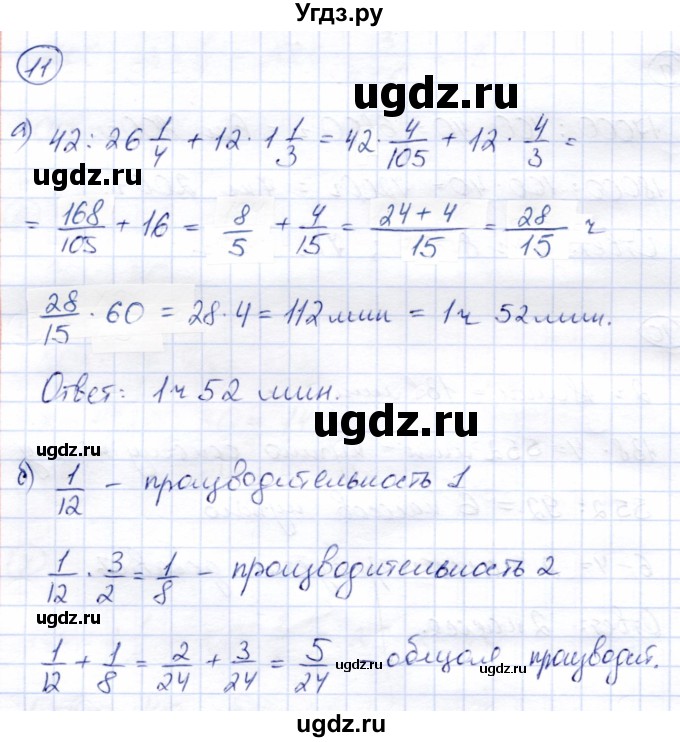 Угдз.ру
11
ugdz.ru
ugdz.ru
а) 42 : 26 1/4 + 12 · 1 1/3 = 42 · 4/105 + 12 · 4/3 =
ugdz.ru
= 168/105 + 16 = 8/5 + 4/15 = (24 + 4)/15 = 28/15 ч
28/15 · 60 = 28 · 4 = 112 мин = 1ч 52 мин.
Ответ: 1ч 52 мин.
ugdz.ru
ugdz.ru
б) 1/12 – производительность 1
1/12 · 3/2 = 1/8 – производительность 2
1/12 + 1/8 = 2/24 + 3/24 = 5/24 ugdz.ru общая производит.
ugdz.ru
ugdz.ru
ugdz.ru